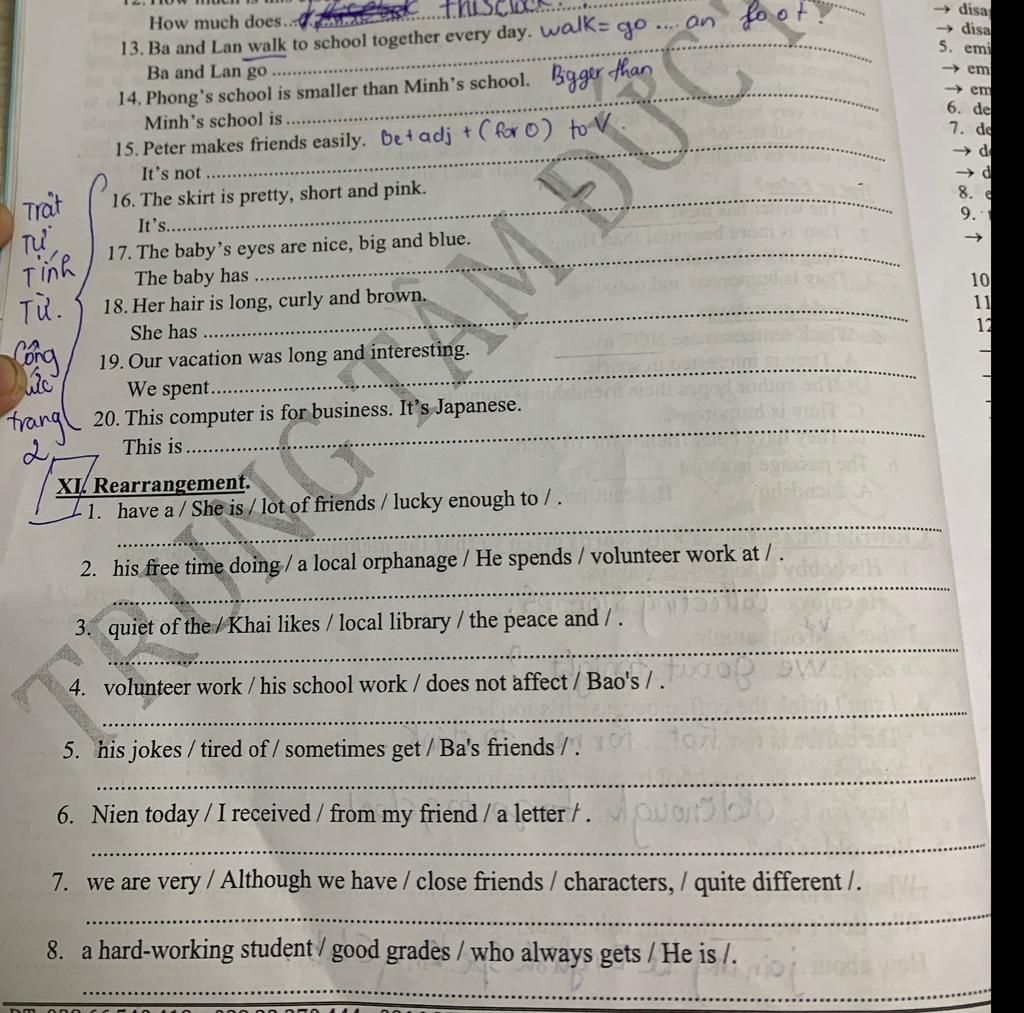 How much does.. this clock
13. Ba and Lan walk to school together every day. walk = go .... an foot
Ba and Lan go ..........
14. Phong's school is smaller than Minh's school. Bigger than
Minh's school is ..........
15. Peter makes friends easily. Be + adj + (for O) to V.
It's not ..........
16. The skirt is pretty, short and pink.
It's..........
17. The baby's eyes are nice, big and blue.
The baby has ..........
18. Her hair is long, curly and brown.
She has ..........
19. Our vacation was long and interesting.
We spent..........
20. This computer is for business. It's Japanese.
This is ..........
Trật
Tự
Tính
Từ.
Công
trang
2
XI. Rearrangement.
1. have a / She is / lot of friends / lucky enough to / .
2. his free time doing / a local orphanage / He spends / volunteer work at / .
3. quiet of the / Khai likes / local library / the peace and / .
4. volunteer work / his school work / does not affect / Bao's / .
5. his jokes / tired of / sometimes get / Ba's friends / .
6. Nien today / I received / from my friend / a letter / .
7. we are very / Although we have / close friends / characters, / quite different /.
8. a hard-working student / good grades / who always gets / He is /.
TRUNG TÂM ĐỨC T
→ disa
→ disa
5. emi
→ em
→ em
6. de
7. de
→ d
→ d
8. e
9.
→
10
11
12